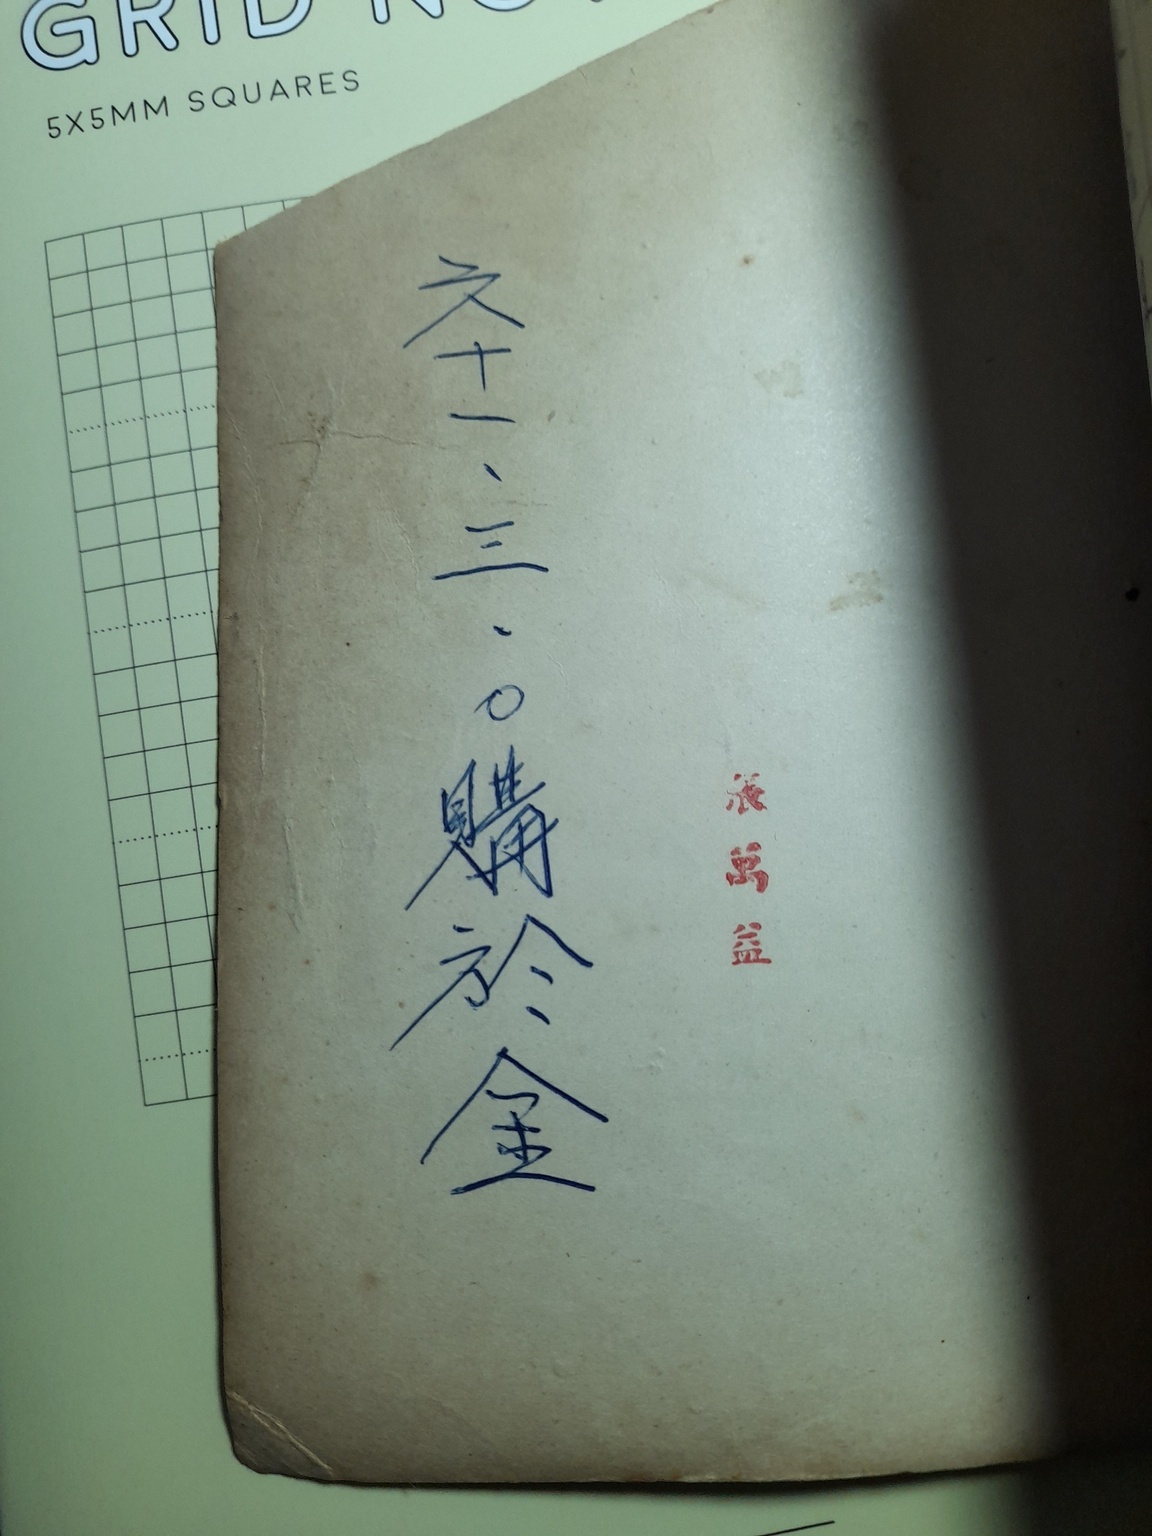 GRID
5X5MM SQUARES
張萬益
六十一、三.〇購於金